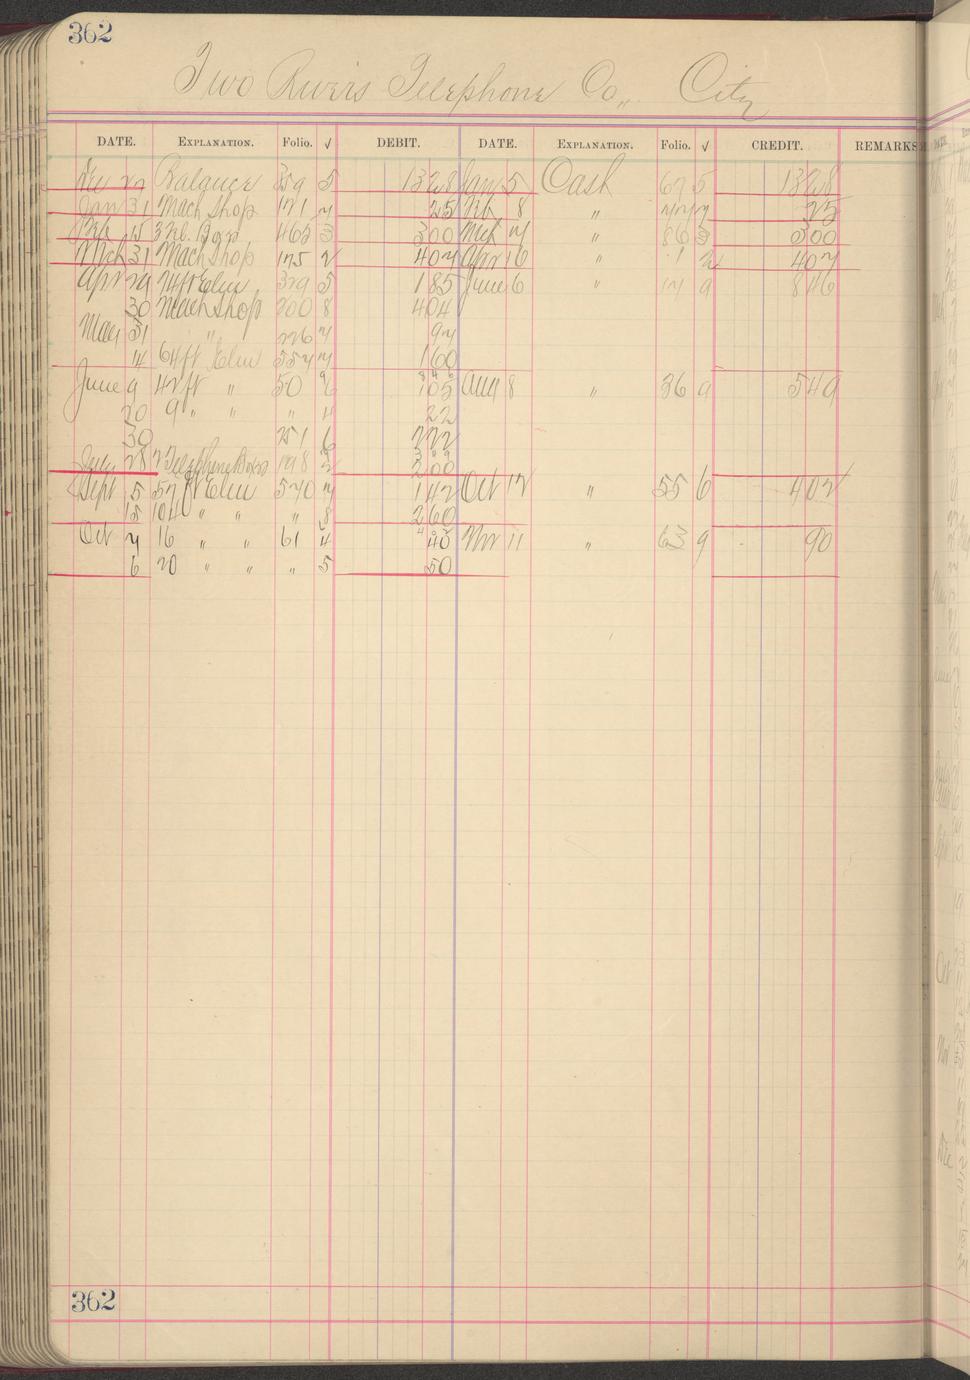 362
Two Rivers Telephone Co., City
DATE. EXPLANATION. Folio. √ DEBIT. DATE. EXPLANATION. Folio. √ CREDIT. REMARKS
Dec 27 Balance 359 5 1328 Jan 5 Cash 67 5 1328
Jan 31 Mach Shop 171 25 Feb 8 " 25
Feb 15 3 Tel. Boxs 463 3 300 Mch " 86 3 300
Mch 31 Mach Shop 175 2 407 Apr 16 " 2 407
Apr 29 74 ft Elm 329 5 185 June 6 " 9 846
30 Mach Shop 200 8 404
May 31 " 226 7 97
14 64 ft Elm 557 7 160
June 9 42 ft " 50 105 Aug 8 " 36 9 549
20 9 " " " 4 22
30 251 6 222
July 28 2 Telephone Boxs 198 200
Sept 5 57 ft Elm 570 7 142 Oct 12 " 55 6 402
15 104 " " " 8 260
Oct 4 16 " " 61 4 40 Nov 11 " 63 9 90
6 20 " " " 5 50
362